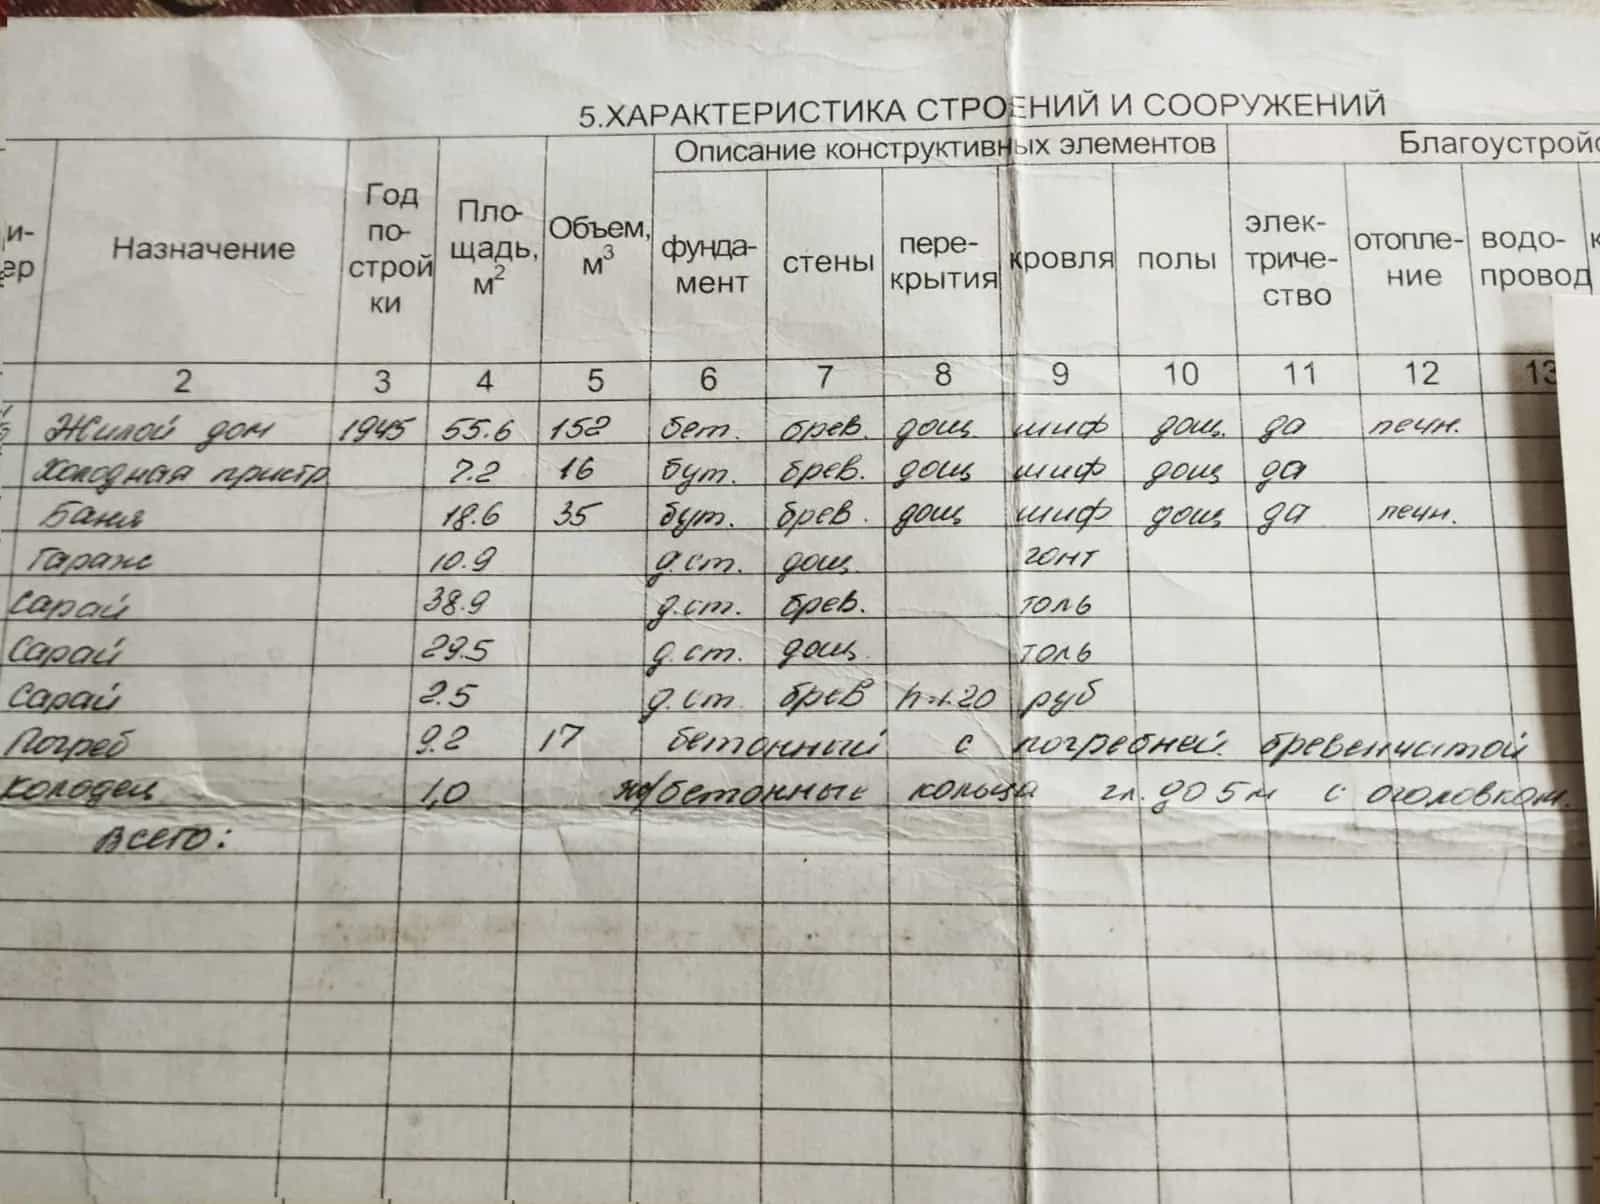 5.ХАРАКТЕРИСТИКА СТРОЕНИЙ И СООРУЖЕНИЙ
Описание конструктивных элементов Благоустройс
и-
ер Назначение Год по-строй ки Пло-щадь, м2 Объем, м3 фунда-мент стены пере-крытия кровля полы элек-триче-ство отопле-ние водо-провод к
2 3 4 5 6 7 8 9 10 11 12 13
Жилой дом 1945 55.6 152 бет. брев. дощ шиф дощ. да печн.
Холодная пристр 7.2 16 бут. брев. дощ шиф дощ да
Баня 18.6 35 бут. брев. дощ шиф дощ да печн.
Гараж 10.9 д.ст. дощ. гонт
Сарай 38.9 д.ст. брев. толь
Сарай 29.5 д.ст. дощ. толь
Сарай 2.5 д.ст. брев h=1.20 руб
Погреб 9.2 17 бетонный с погребней бревенчатой
Колодец 1,0 ж/бетонные кольца гл. до 5м с оголовком.
Всего: